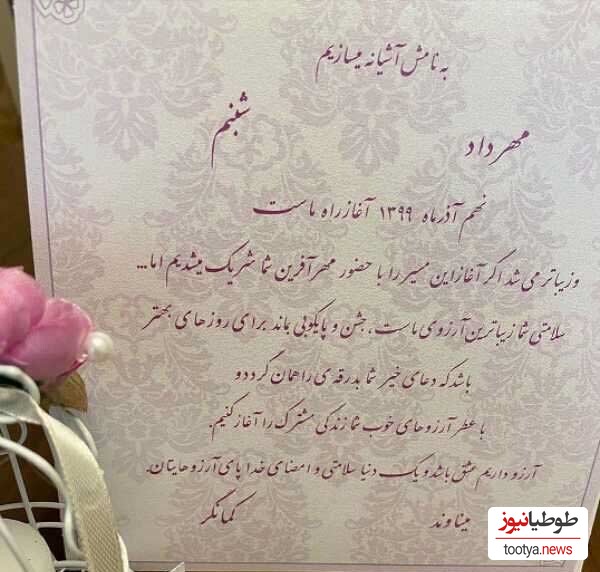 به نامش آشیانه میسازیم
مهرداد شبنم
نهم آذرماه ۱۳۹۹ آغاز راه ماست
و زیباتر می شد اگر آغاز این مسیر را با حضور مهرآفرین شما شریک میشدیم اما...
سلامتی شما زیباترین آرزوی ماست، جشن و پایکوبی بماند برای روزهای بهتر
باشد که دعای خیر شما بدرقه ی راهمان گردد و
با عطر آرزوهای خوب شما زندگی مشترک را آغاز کنیم.
آرزو داریم عشق باشد و یک دنیا سلامتی و امضای خدا پای آرزوهایتان.
میناوند کمانگر
طوطیانیوز
tootya.news